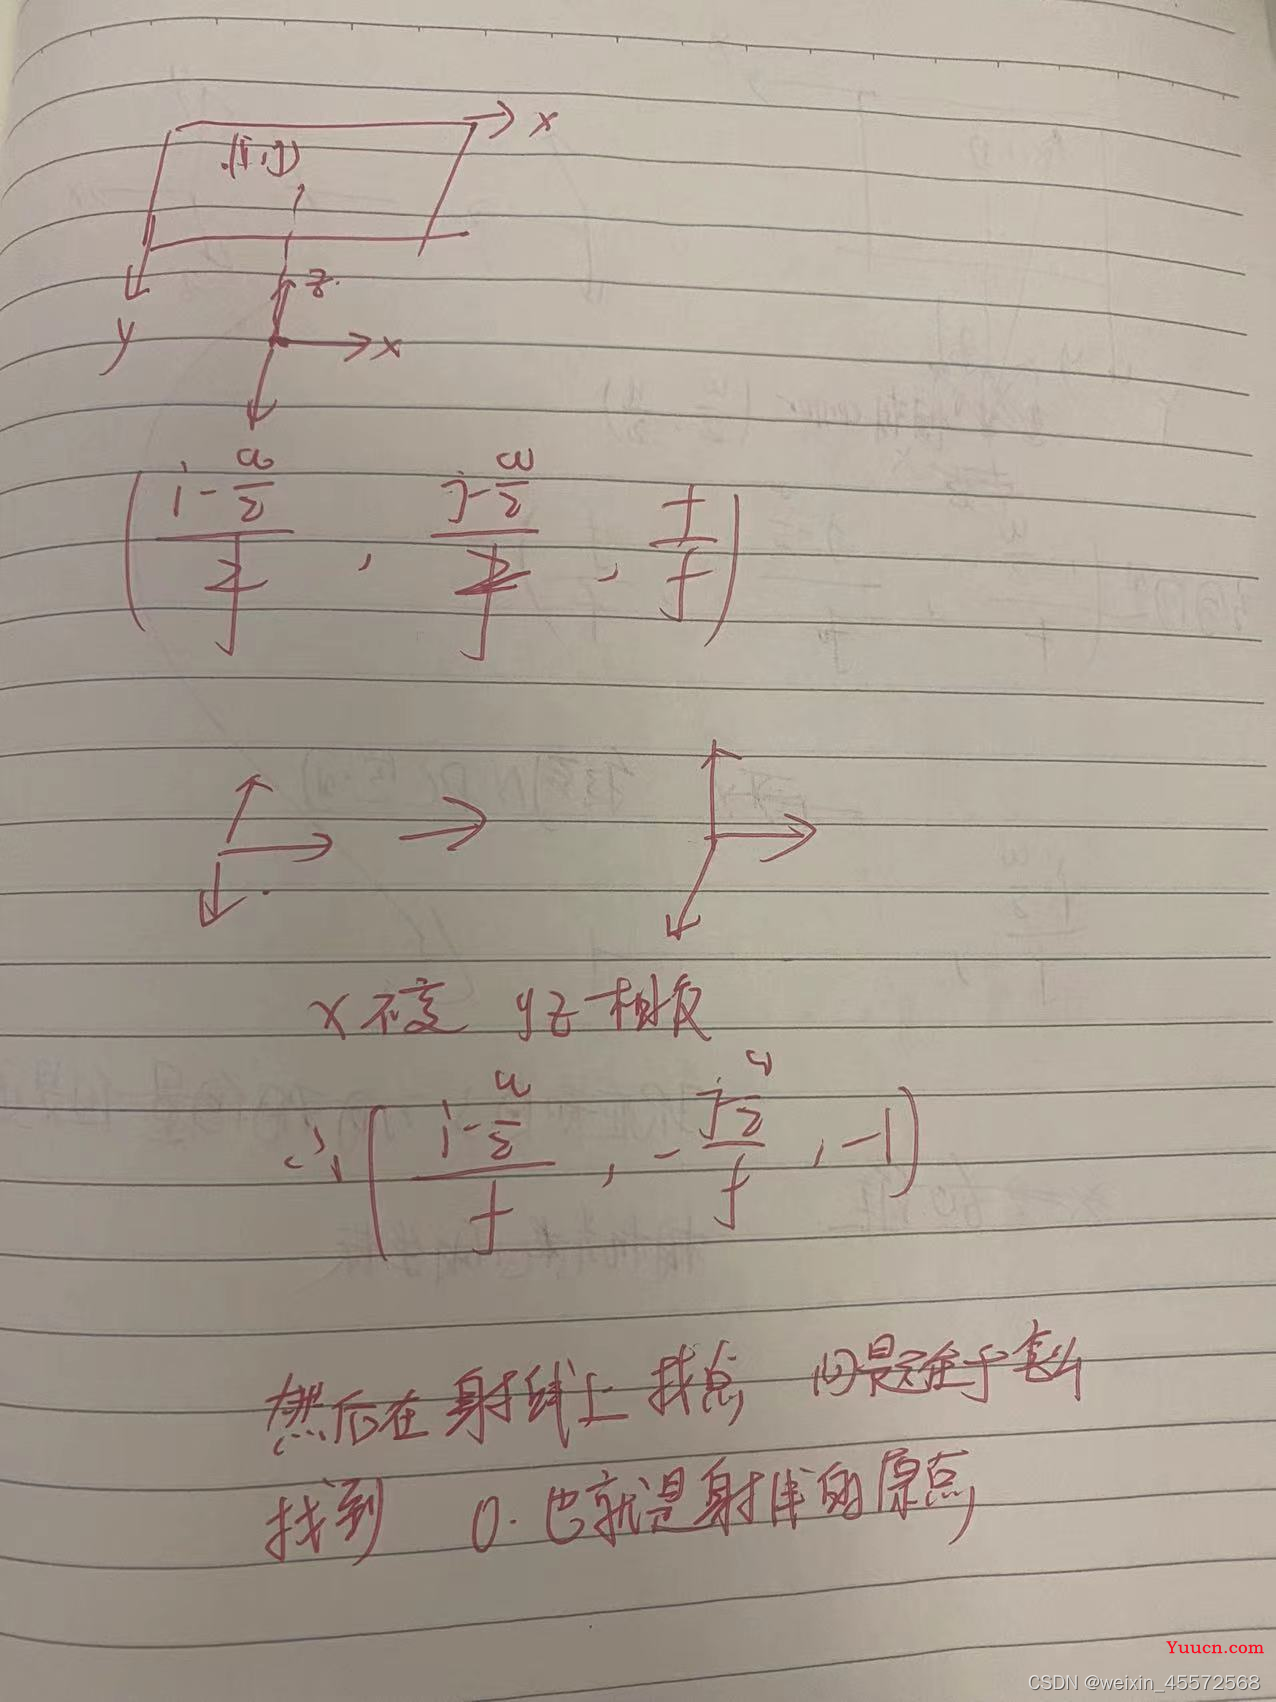 x
.(i,j)
z.
y
x
( (i-w/2)/f , (j-w/2)/f , f/f )
x不变 yz相反
∴ ( (i-w/2)/f , -(j-w/2)/f , -1 )
然后在射线上找点 问题在于怎么
找到 O.也就是射线的原点
Yuucn.com
CSDN @weixin_45572568